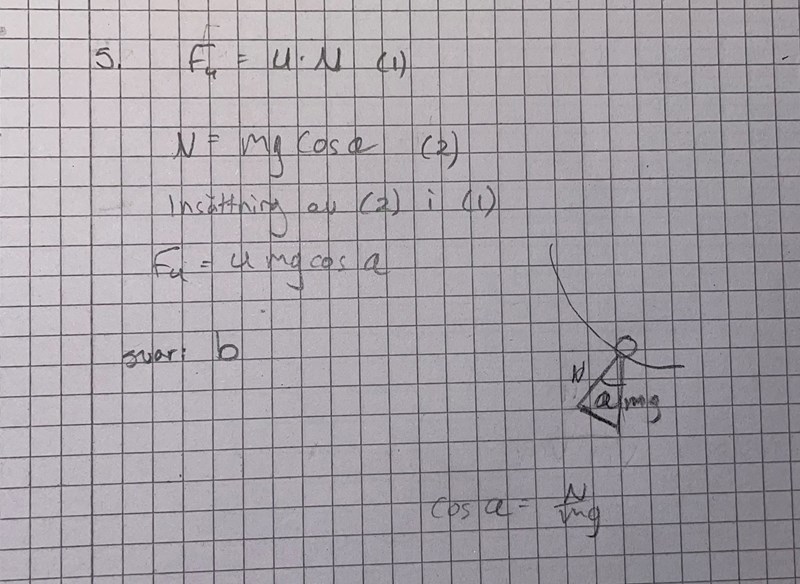 5. Fμ = μ · N (1)
N = mg cos α (2)
Insättning av (2) i (1)
Fμ = μ mg cos α
svar: b
N
α mg
cos α = N/mg